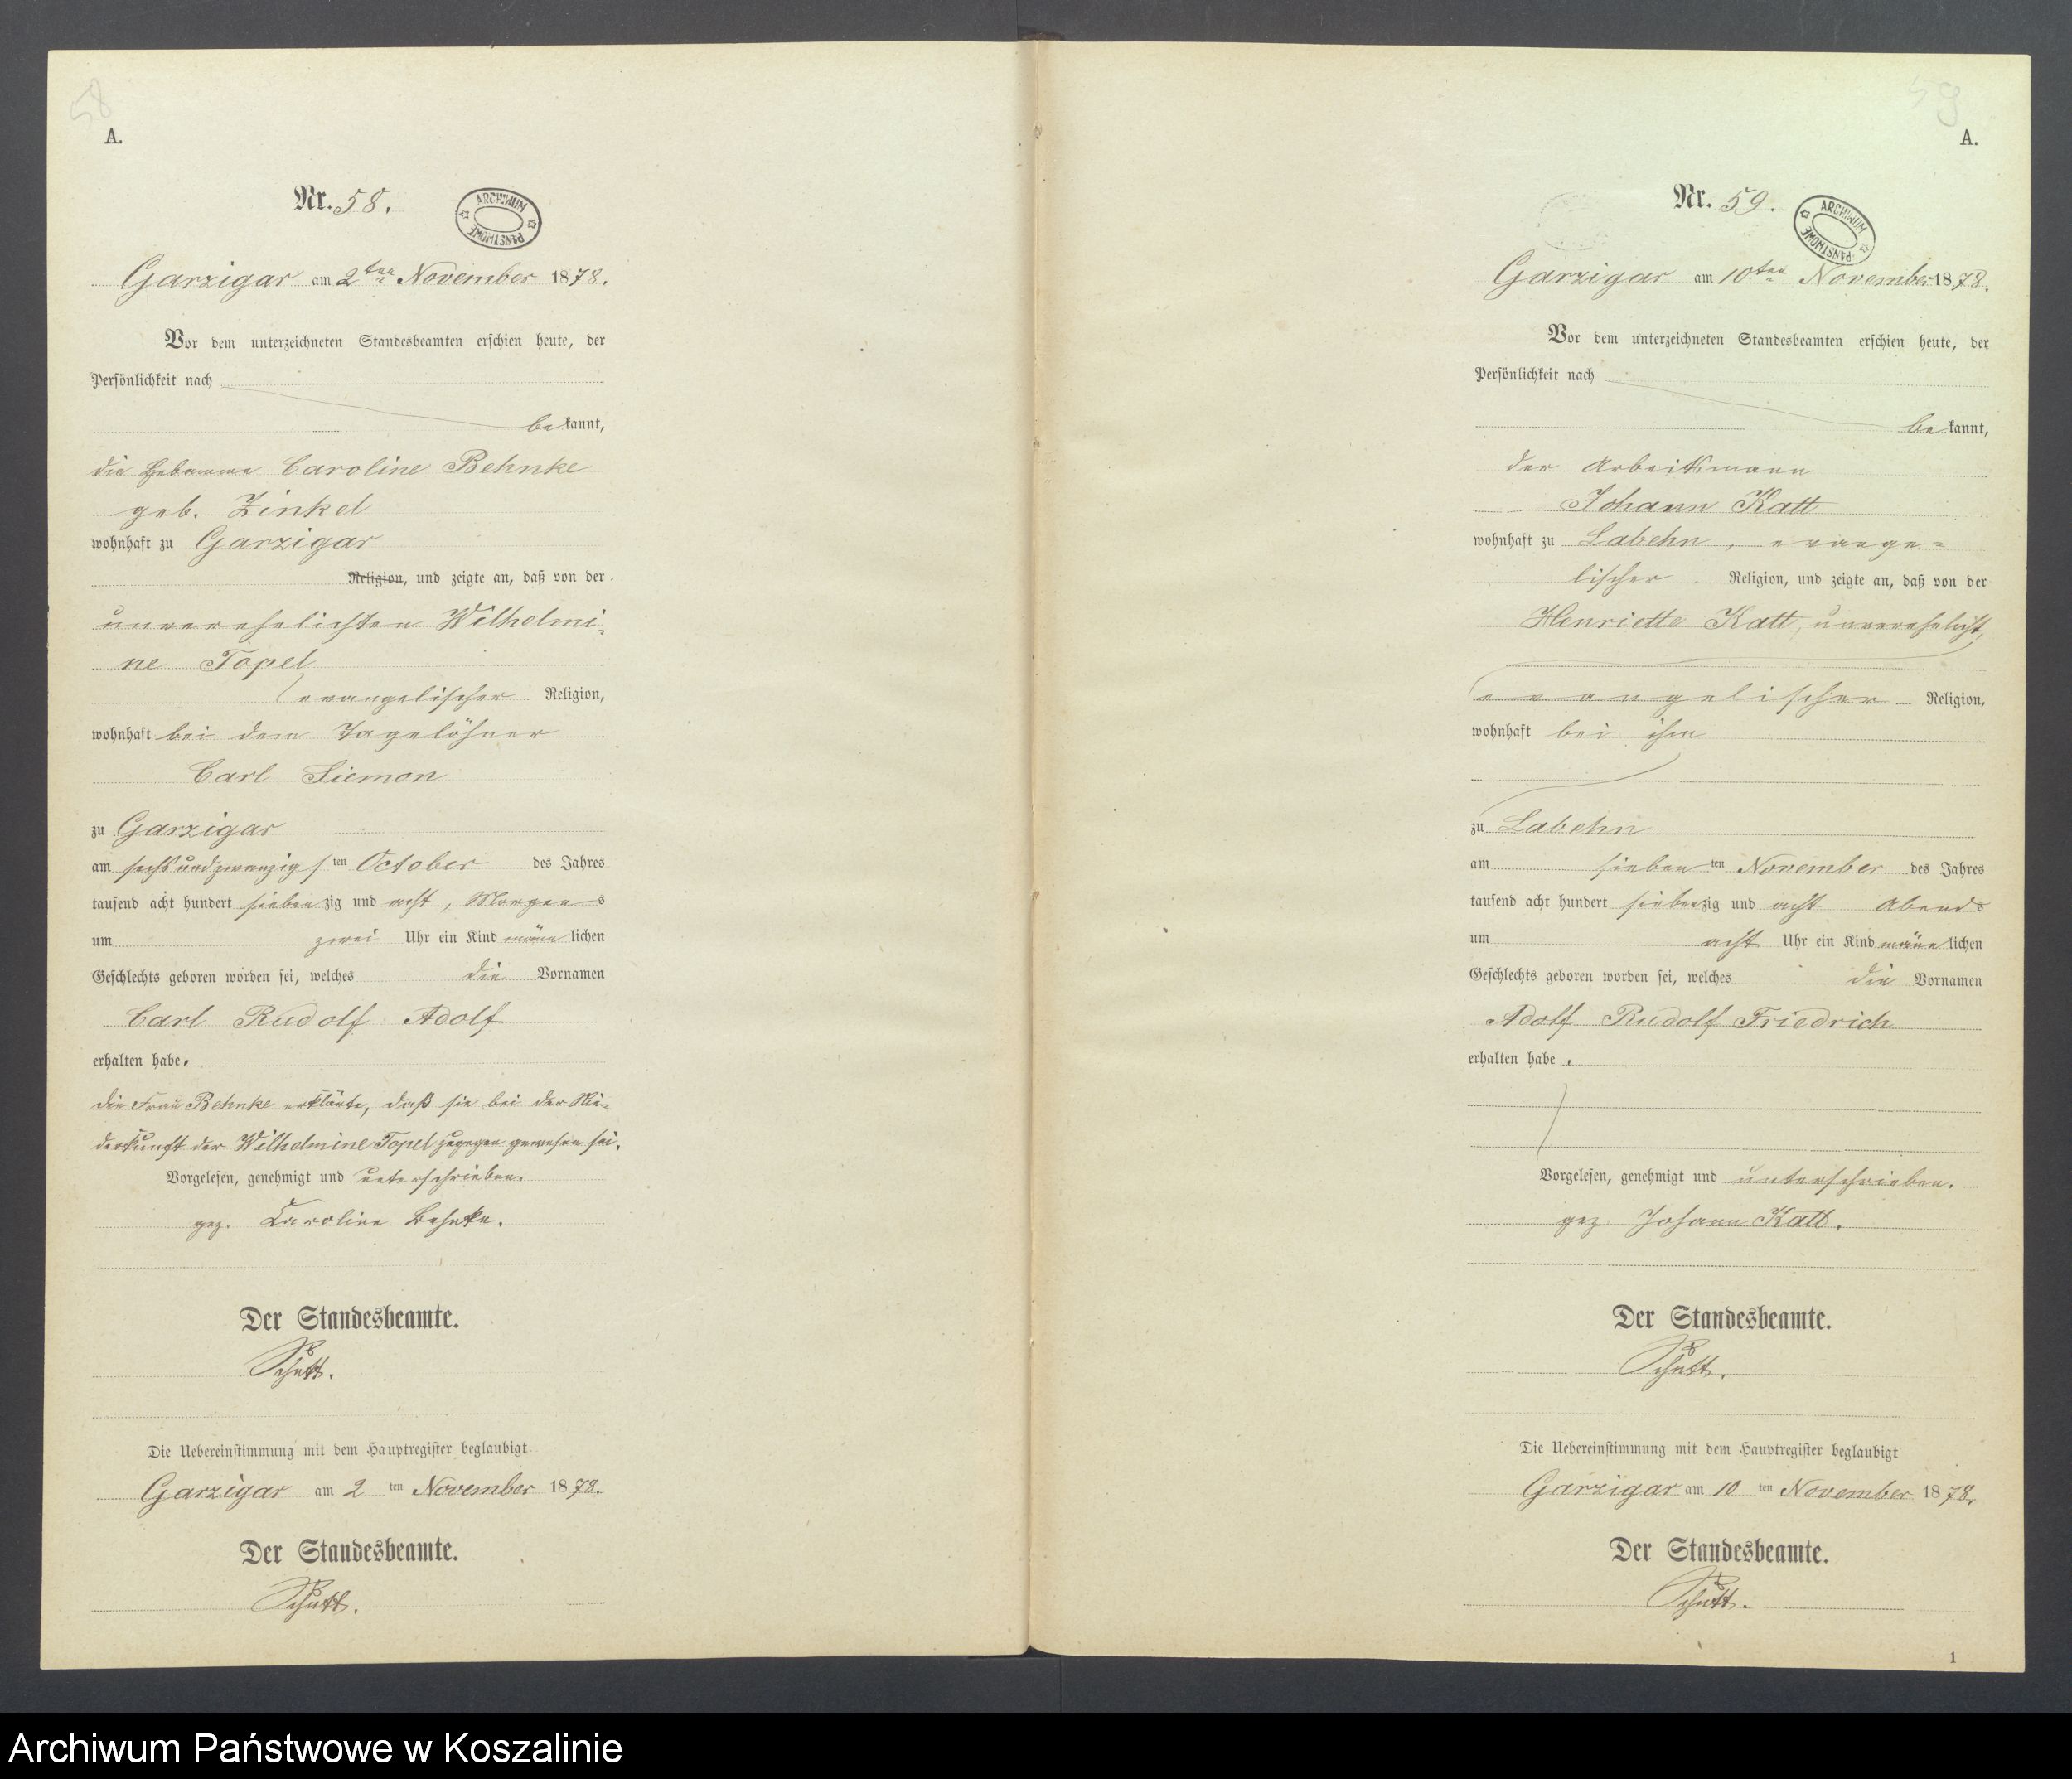 58
A.
Nr. 58.
ARCHIWUM PAŃSTWOWE
Garzigar am 2ten November 1878.
Vor dem unterzeichneten Standesbeamten erschien heute, der
Persönlichkeit nach
bekannt,
die Hebamme Caroline Behnke
geb. Zinkel
wohnhaft zu Garzigar
Religion, und zeigte an, daß von der
unverehelichten Wilhelmi-
ne Topel
evangelischer Religion,
wohnhaft bei dem Tagelöhner
Carl Siemon
zu Garzigar
am sechsundzwanzigsten October des Jahres
tausend acht hundert siebenzig und acht, Morgens
um zwei Uhr ein Kind männlichen
Geschlechts geboren worden sei, welches die Vornamen
Carl Rudolf Adolf
erhalten habe.
die Frau Behnke erklärte, daß sie bei der Nie-
derkunft der Wilhelmine Topel zugegen gewesen sei.
Vorgelesen, genehmigt und unterschrieben.
gez. Caroline Behnke.
Der Standesbeamte.
Schütt.
Die Uebereinstimmung mit dem Hauptregister beglaubigt
Garzigar am 2 ten November 1878.
Der Standesbeamte.
Schütt.
59
A.
Nr. 59.
ARCHIWUM PAŃSTWOWE
Garzigar am 10ten November 1878.
Vor dem unterzeichneten Standesbeamten erschien heute, der
Persönlichkeit nach
bekannt,
der Arbeitsmann
Johann Katt
wohnhaft zu Labehn, evange-
lischer Religion, und zeigte an, daß von der
Henriette Katt, unverehelicht,
evangelischer Religion,
wohnhaft bei ihm
zu Labehn
am sieben ten November des Jahres
tausend acht hundert siebenzig und acht Abends
um acht Uhr ein Kind männlichen
Geschlechts geboren worden sei, welches die Vornamen
Adolf Rudolf Friedrich
erhalten habe.
Vorgelesen, genehmigt und unterschrieben.
gez. Johann Katt.
Der Standesbeamte.
Schütt.
Die Uebereinstimmung mit dem Hauptregister beglaubigt
Garzigar am 10 ten November 1878.
Der Standesbeamte.
Schütt.
1
Archiwum Państwowe w Koszalinie